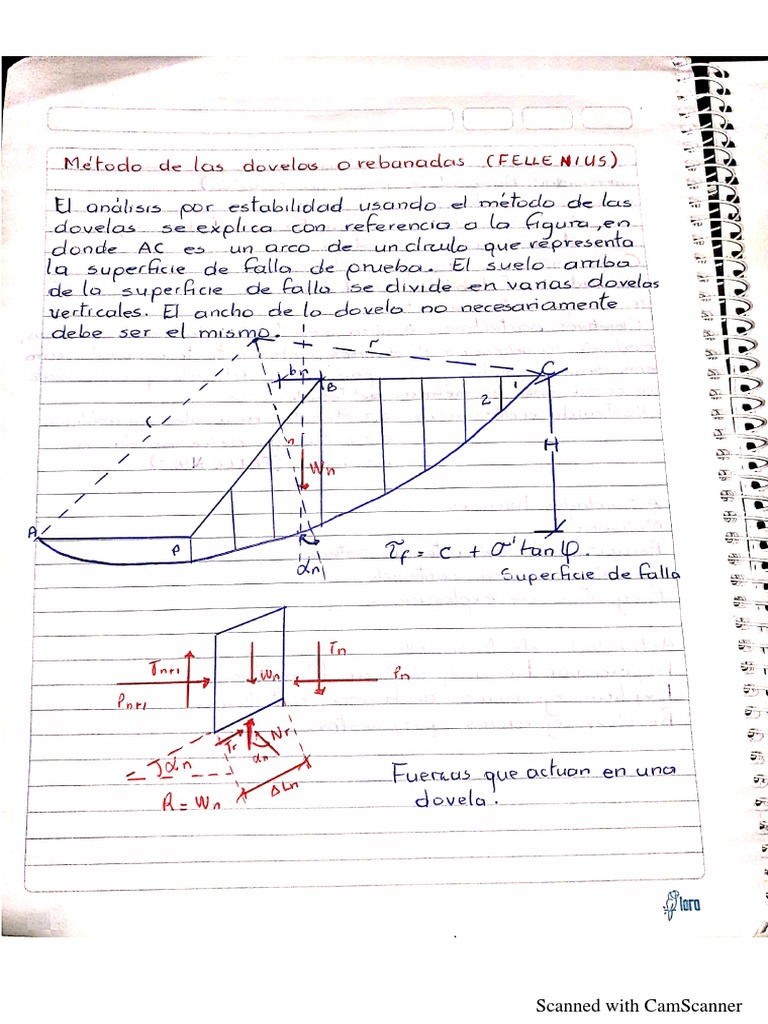 Método de las dovelas o rebanadas (FELLENIUS)
El análisis por estabilidad usando el método de las
dovelas se explica con referencia a la figura, en
donde AC es un arco de un círculo que representa
la superficie de falla de prueba. El suelo arriba
de la superficie de falla se divide en varias dovelas
verticales. El ancho de la dovela no necesariamente
debe ser el mismo.
r
C
bn
B
1
2
r
n
Wn
H
A
αn
τf = c + σ' tan φ.
Superficie de falla
Tn
Tn+1
Wn
Pn
Pn+1
Tr
Nr
αn
αn
ΔLn
R = Wn
Fuerzas que actuan en una
dovela.
lora
Scanned with CamScanner